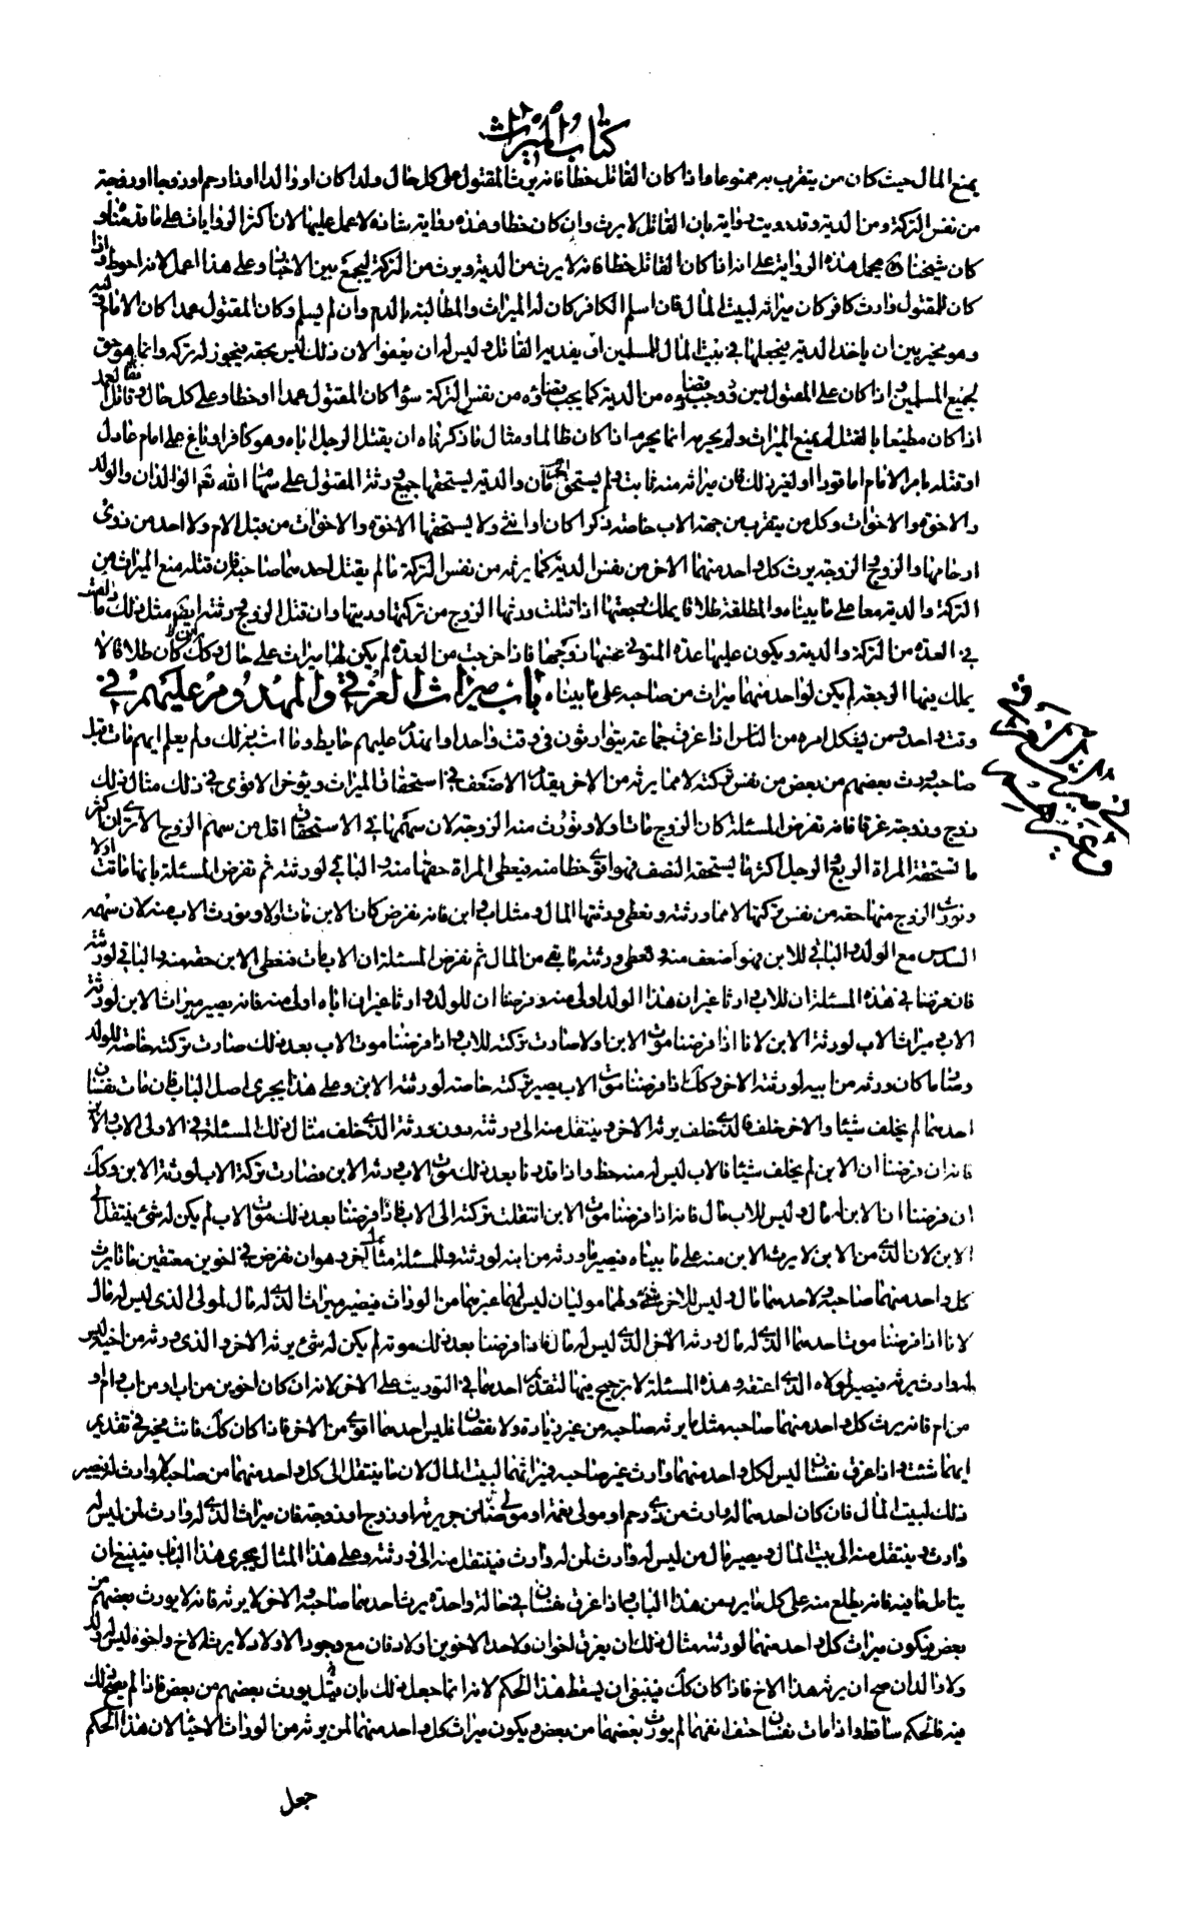 كتاب الميراث
يمنع المال حيث كان من يتقرب به ممنوعا واذا كان القاتل خطأ فانه يرث المقتول على كل حال ولدا كان او والدا او ذا رحم او زوجا او زوجة
من نفس التركة ومن الدية وقد رويت رواية بان القاتل لا يرث وان كان خطا وهذه رواية شاذة لا عمل عليها لان اكثر الروايات على ما قدمناه و
كان شيخنا يحمل هذه الرواية على انه اذا كان القاتل خطا فانه لا يرث من الدية ويرث من التركة ليجمع بين الاخبار وعلى هذا اعمل لانه احوط واذا
كان للمقتول وارث كافر كان ميراثه لبيت المال فان اسلم الكافر كان له الميراث والمطالبة بالدم وان لم يسلم وكان المقتول عمدا كان الامام وليه
وهو مخير بين ان ياخذ الدية يجعلها في بيت المال للمسلمين او يقيد به القاتل وليس له ان يعفو لان ذلك ليس بحقه فيجوز له تركه وانما هو حق
لجميع المسلمين واذا كان على المقتول دين وجب قضاؤه من الدية كما يجب قضاؤه من نفس التركة سواء كان المقتول عمدا او خطا وعلى كل حال وقاتل العمد
اذا كان مطيعا بالقتل لم يمنع الميراث ولم يحرمه انما يحرمه اذا كان ظالما ومثال ما ذكرناه ان يقتل الرجل اباه وهو كافر او باغ على امام عادل
او قتله بامر الامام اما قودا او لغير ذلك فان ميراثه منه ثابت ولم يستحق الحرمان والدية يستحقها جميع ورثة المقتول على سهام الله نعم الوالدان والولد
والاخوة والاخوات وكل من يتقرب من جهة الاب خاصة ذكرا كان او انثى ولا يستحقها الاخوة والاخوات من قبل الام ولا احد من ذوي
ارحامها والزوج والزوجة يرث كل واحد منهما الاخر من نفس الدية كما يرثه من نفس التركة ما لم يقتل احدهما صاحبه فان قتله منع الميراث من
التركة والدية معا على ما بيناه والمطلقة طلاقا يملك رجعتها اذا قتلت ورثها الزوج من تركتها وديتها وان قتل الزوج ورثته ايضم مثل ذلك ما دامت
في العدة من التركة والدية ويكون عليها عدة المتوفى عنها زوجها فاذا خرجت من العدة لم يكن لها ميراث على حال وكك ان كان طلاقا لا
يملك فيها الرجعة لم يكن لواحد منهما ميراث من صاحبه على ما بيناه باب ميراث الغرقى والمهدوم عليهم في
وقت واحد ومن يشكل امره من الناس اذا غرق جماعة يتوارثون في وقت واحد او يهدم عليهم حايط وما اشبه ذلك ولم يعلم ايهم مات قبل
صاحبه ورث بعضهم من بعض من نفس تركته لا مما يرثه من الاخر يقدم الاضعف في استحقاق الميراث ويؤخر الاقوى في ذلك مثال ذلك
زوج وزوجة غرقا فانه تفرض المسئلة كان الزوج مات اولا وتورث منه الزوجة لان سهمها في الاستحقاق اقل من سهم الزوج الا ترى ان اكثر
ما تستحقه المراة الربع والرجل اكثر ما يستحقه النصف فهو اقوى حظا منه فيعطى المراة حقها منه والباقي لورثته ثم تفرض المسئلة بانها ماتت اولا
وتورث الزوج منها حقه من نفس تركتها لا مما ورثته وتعطى ورثتها المال ومثل اب وابن فانه تفرض كان الابن مات اولا ويورث الاب منه لان سهمه
السدس مع الولد والباقي للابن فهو اضعف منه ويعطى ورثته ما بقى من المال ثم تفرض المسئلة ان الاب مات فيعطى الابن حقه منه والباقي لورثته
فان فرضنا في هذه المسئلة ان للاب وارثا غير ان هذا الولد اولى منه وفرضنا ان للولد وارثا غير ان اباه اولى منه فانه يصير ميراث الابن لورثة
الاب وميراث الاب لورثة الابن لانا اذا فرضنا موت الابن اولا صارت تركته للاب واذا فرضنا موت الاب بعد ذلك صارت تركته خاصة للولد
وصار ما كان ورثه من ابيه لورثته الاخر وكك اذا فرضنا موت الاب يصير تركته خاصة لورثة الابن وعلى هذا يجرى اصل الباب فان مات نفسان
احدهما لم يخلف شيئا والاخر خلف فالذي خلف يرثه الاخر وينتقل منه الى ورثته دون ورثة الذي خلف مثال ذلك المسئلة في الاولى الاب والابن
فانه ان فرضنا ان الابن لم يخلف شيئا فالاب ليس له منه حظ واذا قدرنا بعد ذلك موت الاب ورثه الابن فصارت تركة الاب لورثة الابن وكك
ان فرضنا ان الابن له مال وليس للاب مال فانه اذا فرضنا موت الابن انتقلت تركته الى الاب فاذا فرضنا بعد ذلك موت الاب لم يكن له شئ ينتقل الى
الابن لان الذي من الابن لا يرث الابن منه على ما بيناه فيصير ما ورثه من ابنه لورثته وللمسئلة مثال اخر وهو ان نفرض في اخوين معتقين ماتا يرث
كل واحد منهما صاحبه ولاحدهما مال وليس للاخر شئ ولهما موليان ليس لهما غيرهما من الوراث فيصير ميراث الذي له مال لمولى الذي ليس له مال
لانا اذا فرضنا موت احدهما الذي له مال ورثه الاخر الذي ليس له مال فاذا فرضنا بعد ذلك موته لم يكن له شئ يرثه الاخر والذي ورثه من اخيه ليس
له وارث يرثه فيصير لمولاه الذي اعتقه وهذه المسئلة لا ترجيح فيها لتقديم احدهما في التوريث على الاخر لانه ان كان اخوين من اب او من اب وام او
من ام فانه يرث كل واحد منهما صاحبه مثل ما يرثه صاحبه من غير زيادة ولا نقصان فليس احدهما اقوى من الاخر فاذا كان كك فانت مخير في تقديم
ايهما شئت واذا غرق نفسان ليس لكل واحد منهما وارث غير صاحبه فميراثهما لبيت المال لان ما ينتقل الى كل واحد منهما من صاحبه لا وارث له فيصير
ذلك لبيت المال فان كان احدهما له وارث من ذي رحم او مولى نعمة او مولى ضامن جريرة او زوج او زوجة فان ميراث الذي له وارث لمن ليس له
وارث وينتقل منه الى بيت المال ويصير مال من ليس له وارث لمن له وارث فينتقل منه الى ورثته وعلى هذا المثال يجرى هذا الباب فينبغي ان
يتامل ما فيه فانه يطلع منه على كل ما يرد من هذا الباب واذا غرق نفسان في حالة واحدة يرث احدهما صاحبه والاخر لا يرثه فانه لا يورث بعضهم من
بعض ويكون ميراث كل واحد منهما لورثته مثال ذلك ان يغرق اخوان ولاحد الاخوين اولاد فان مع وجود الاولاد لا يرثه الاخ واخوه ليس له ولد
ولا والدان صح ان يرثه هذا الاخ فاذا كان كك فينبغي ان يسقط هذا الحكم لانه انما جعل ذلك بان قيل يورث بعضهم من بعض فاذا لم يصح ذلك
فيه فالحكم ساقط واذا مات نفسان حتف انفهما لم يورث بعضهما من بعض ويكون ميراث كل واحد منهما لمن يرثه من الوراث الاحياء لان هذا الحكم
في ميراث الغرقى
وغيرهم
جعل